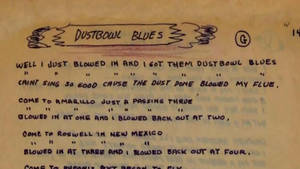 DUSTBOWL BLUES
G
14
WELL I JUST BLOWED IN AND I GOT THEM DUSTBOWL BLUES
" " " " " " " " " "
CAINT SING SO GOOD CAUSE THE DUST DONE BLOWED MY FLUE.
COME TO AMARILLO JUST A PASSING THRUE
" " " " " "
BLOWED IN AT ONE AND I BLOWED BACK OUT AT TWO,
COME TO ROSWELL IN NEW MEXICO
" " " " "
BLOWED IN AT THREE AND I BLOWED BACK OUT AT FOUR.
COME TO PHOENIX